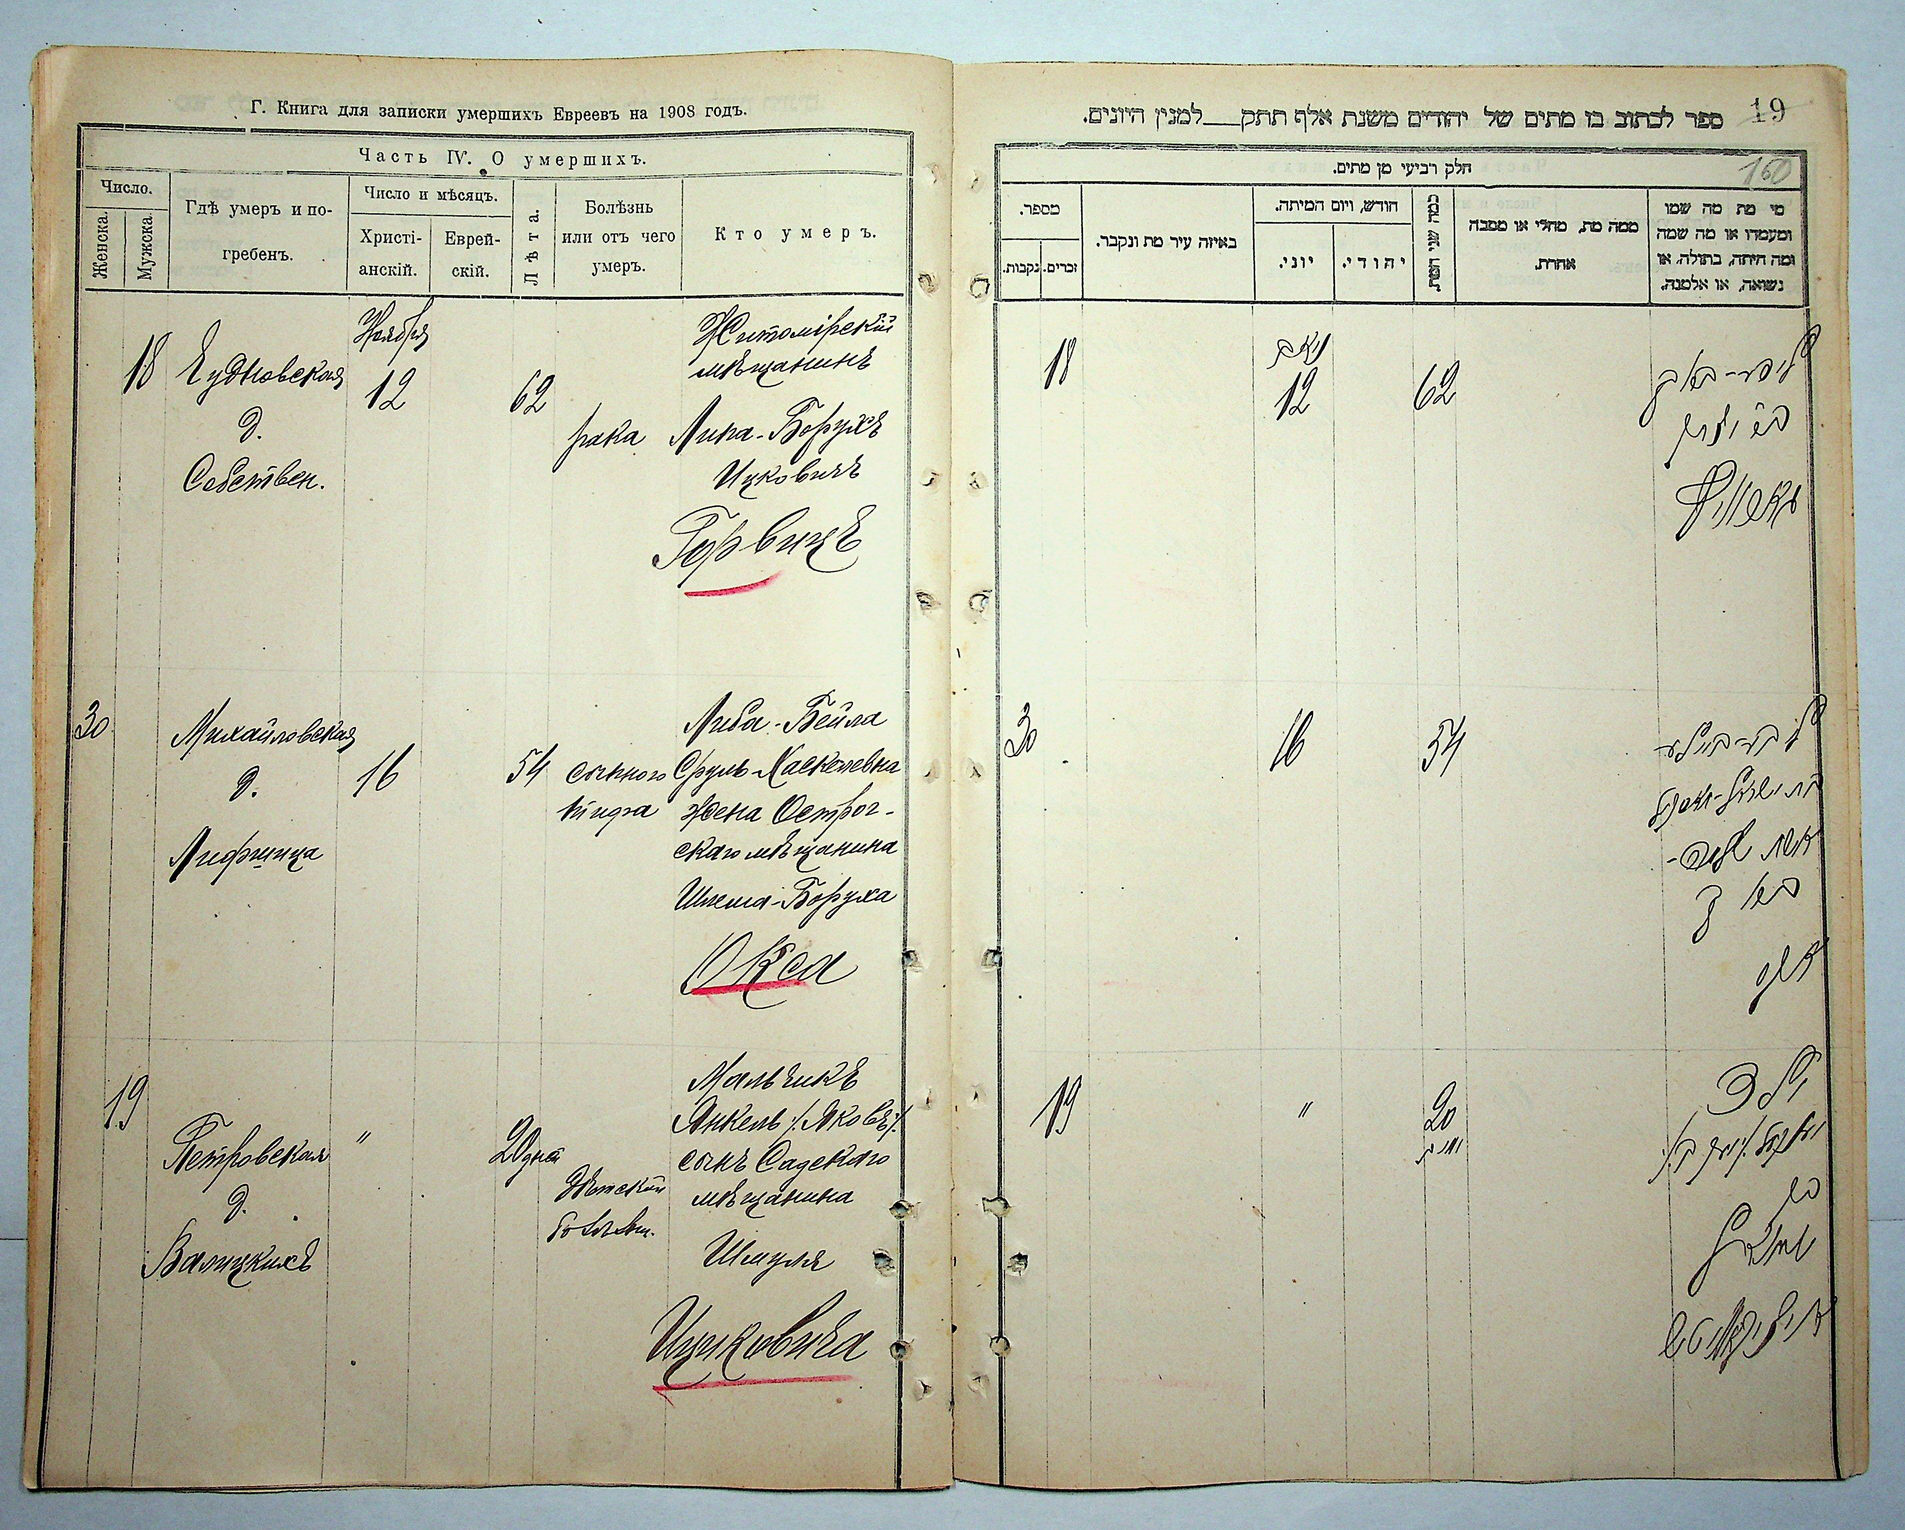 Г. Книга для записки умершихъ Евреевъ на 1908 годъ.
Часть IV. О умершихъ.
Число.
Женска.
Мужска.
Гдѣ умеръ и по-
гребенъ.
Число и мѣсяцъ.
Христі-
анскій.
Еврей-
скій.
Лѣта.
Болѣзнь
или отъ чего
умеръ.
Кто умеръ.
18
Чудновская
д.
Собствен.
Ноября
12
62
рака
Житомірскій
мѣщанинъ
Липа-Борухъ
Ицковичъ
Горвицъ
30
Михайловская
д.
Лифшица
16
54
сыпного
тифа
Либа-Бейла
Сруль-Хаскелевна
жена Острог-
скаго мѣщанина
Шлема-Боруха
Окса
19
Петровская
д.
Валицкихъ
"
20 дней
Дѣтской
болѣзн.
Мальчикъ
Янкель /Яковъ/
сынъ Садскаго
мѣщанина
Шмуля
Ицковича
ספר לכתוב בו מתים של יהודים משנת אלף תתק__למנין היונים.
19
160
חלק רביעי מן מתים.
מספר.
נקבות.
זכרים.
באיזה עיר מת ונקבר.
חודש, ויום המיתה.
יוני.
יהודי.
כמה שני המת.
ממה מת, מחלי או מסבה
אחרת.
מי מת מה שמו
ומעמדו או מה שמה
ומה היתה, בתולה, או
נשואה, או אלמנה.
18
12
62
30
16
54
אשת
19
"
20
ילד
בן